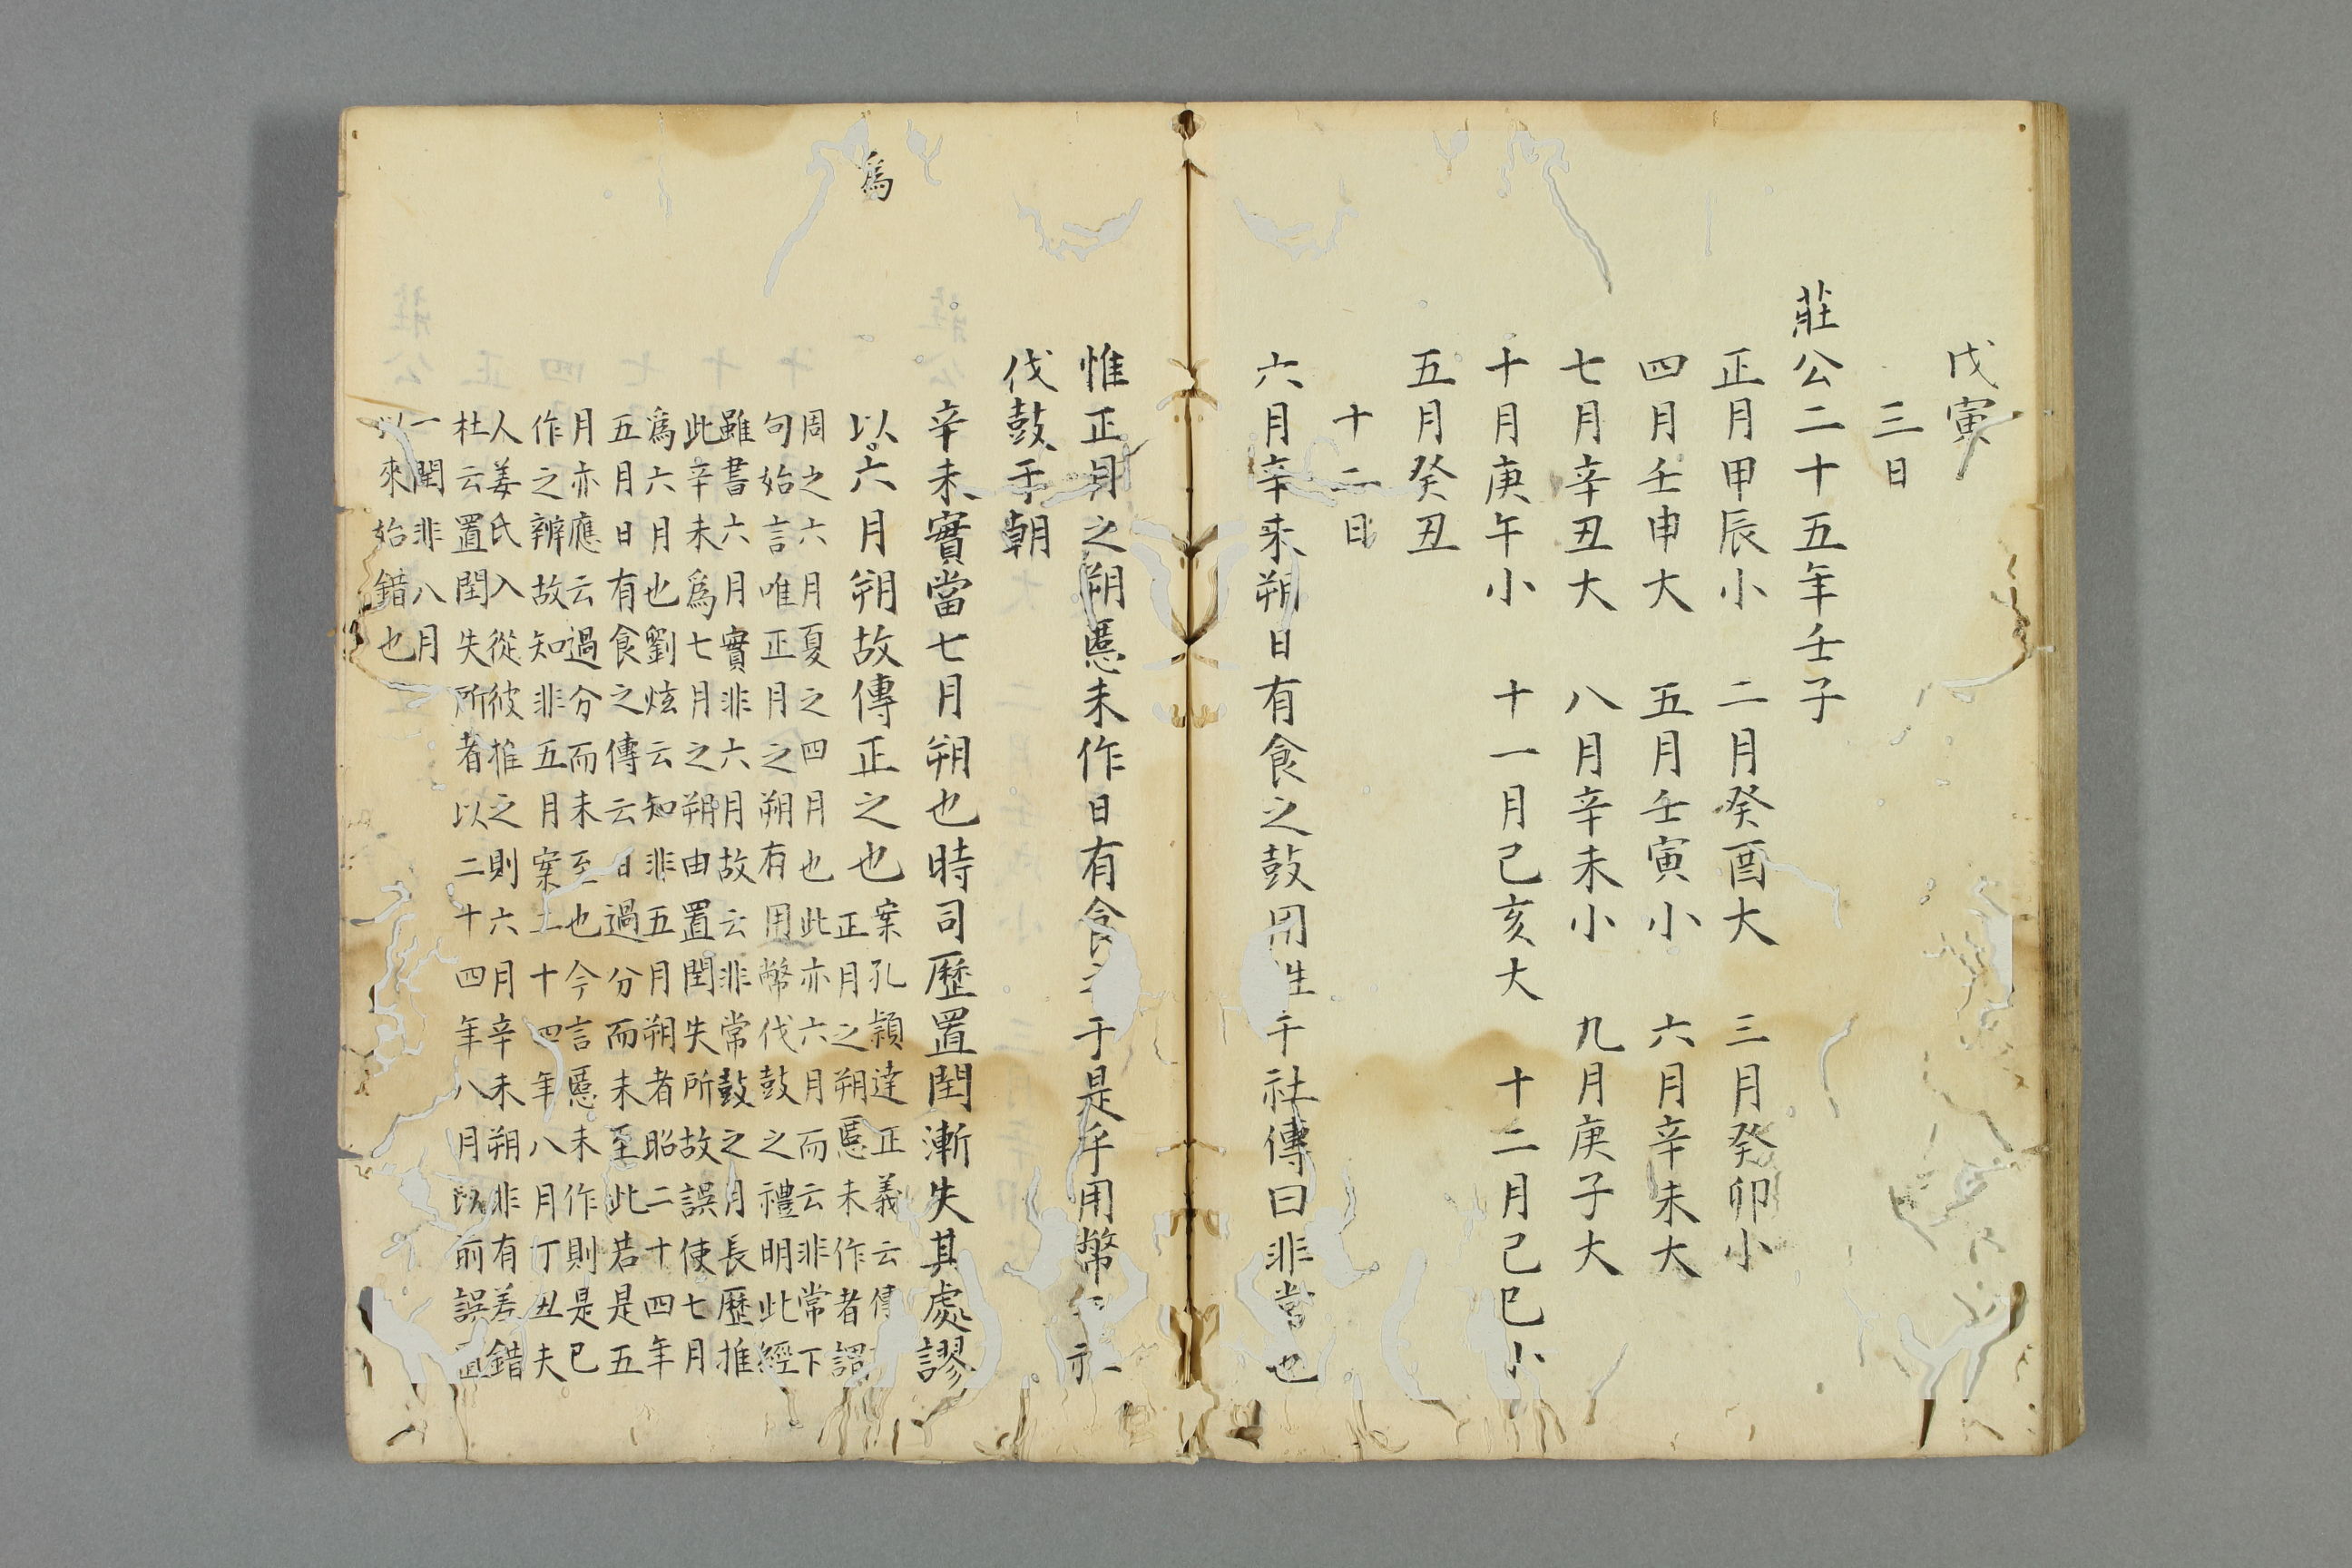 戊寅
三日
莊公二十五年壬子
正月甲辰小 二月癸酉大 三月癸卯小
四月壬申大 五月壬寅小 六月辛未大
七月辛丑大 八月辛未小 九月庚子大
十月庚午小 十一月己亥大 十二月己巳小
五月癸丑
十二日
六月辛未朔日有食之鼓用牲于社傳曰非常也
惟正月之朔慝未作日有食之于是乎用幣于社
伐鼓于朝
辛未實當七月朔也時司歷置閏漸失其處謬
為
以六月朔故傳正之也
案孔頴達正義云傳
正月之朔慝未作者謂
周之六月夏之四月也此亦六月而云非常下
句始言唯正月之朔有用幣伐鼓之禮明此經
雖書六月實非六月故云非常鼓之月長歷推
此辛未為七月之朔由置閏失所故誤使七月
為六月也劉炫云知非五月朔者昭二十四年
五月日有食之傳云日過分而未至此若是五
月亦應云過分而未至也今言慝未作則是已
作之辨故知非五月案二十四年八月丁丑夫
人姜氏入從彼推之則六月辛未朔非有差錯
杜云置閏失所者以二十四年八月以前誤置
一閏非八月
以來始錯也